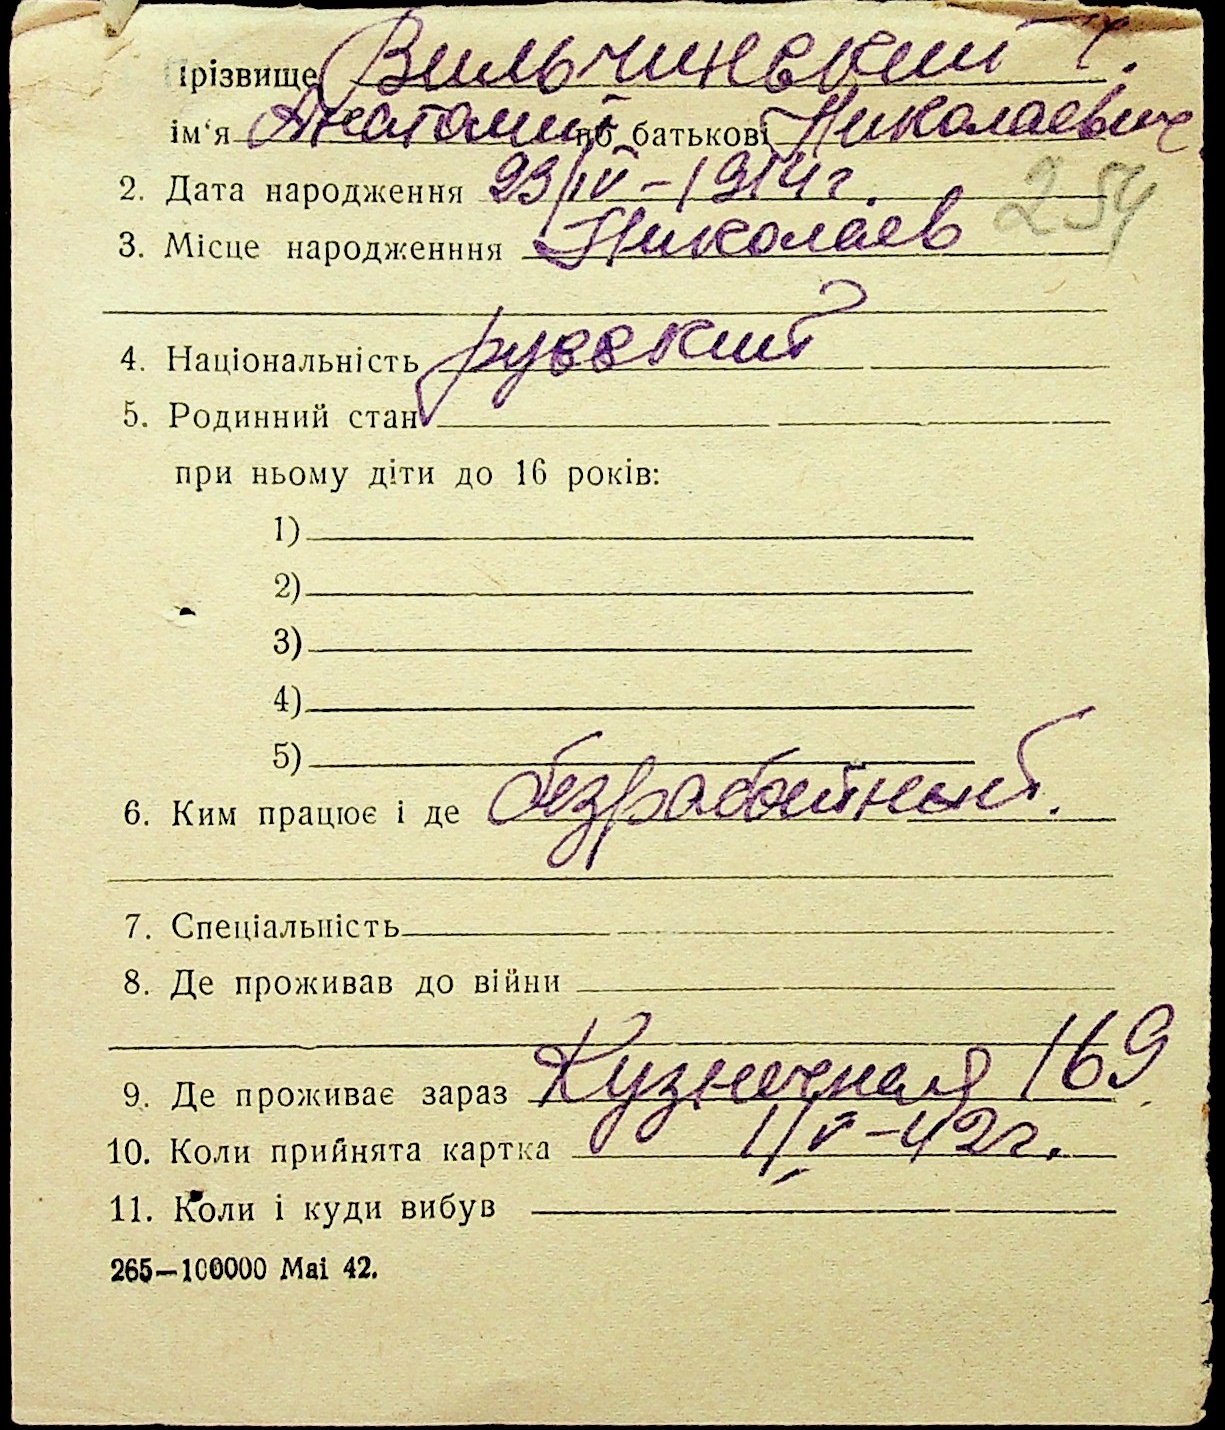 Прізвище Вильчинский
ім‘я Анатолий по батькові Николаевич
2. Дата народження 23/IV-1914г. 254
3. Місце народженння Николаев
4. Національність русский
5. Родинний стан
при ньому діти до 16 років:
1)
2)
3)
4)
5)
6. Ким працює і де безработный.
7. Спеціальність
8. Де проживав до війни
9. Де проживає зараз Кузнечная 169
10. Коли прийнята картка 1/V-42г.
11. Коли і куди вибув
265—100000 Mai 42.